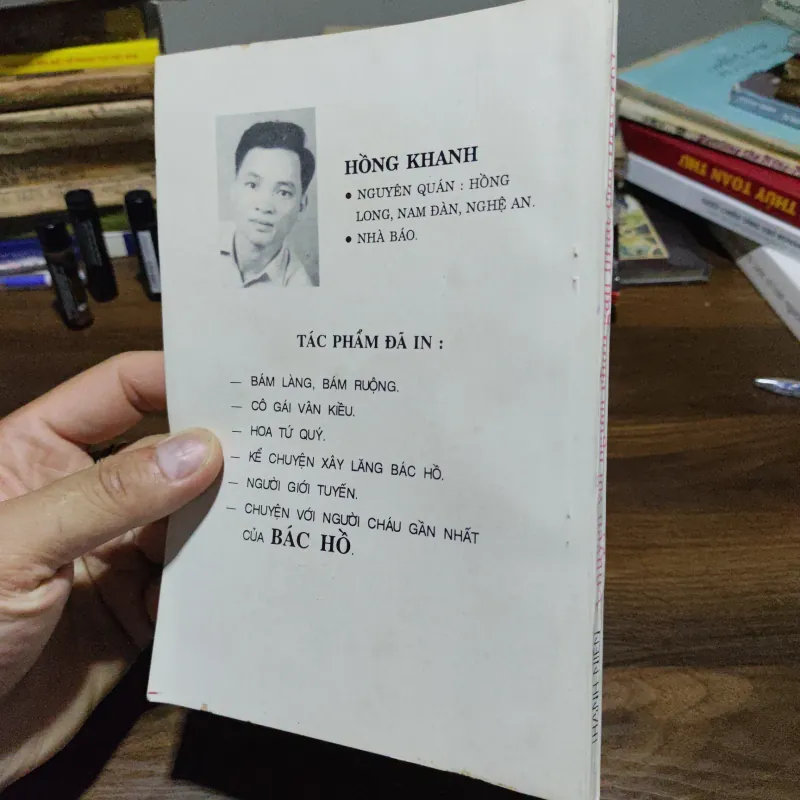 HỒNG KHANH
● NGUYÊN QUÁN : HỒNG
LONG, NAM ĐÀN, NGHỆ AN.
● NHÀ BÁO.
TÁC PHẨM ĐÃ IN :
— BÁM LÀNG, BÁM RUỘNG.
— CÔ GÁI VÂN KIỀU.
— HOA TỨ QUÝ.
— KỂ CHUYỆN XÂY LĂNG BÁC HỒ.
— NGƯỜI GIỚI TUYẾN.
— CHUYỆN VỚI NGƯỜI CHÁU GẦN NHẤT
CỦA BÁC HỒ.
THỦY TOÀN THƯ